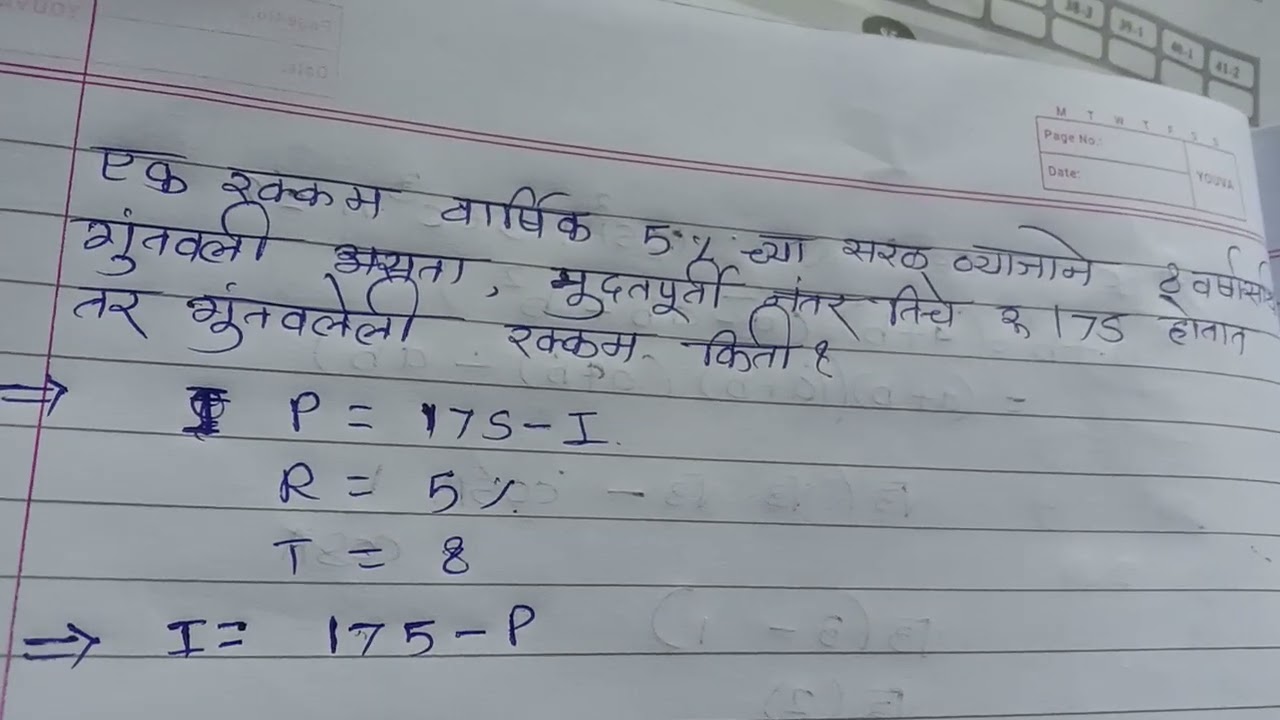 38-3 39-1 40-1 41-2
M T W T F S S
Page No.:
Date:
YOUVA
एक रक्कम वार्षिक 5% च्या सरळ व्याजाने 8 वर्षासाठी
गुंतवली असता, मुदतपूर्ती नंतर तिचे रू 175 होतात
तर गुंतवलेली रक्कम किती?
⇒ P = 175 - I.
R = 5%.
T = 8
⇒ I = 175 - P